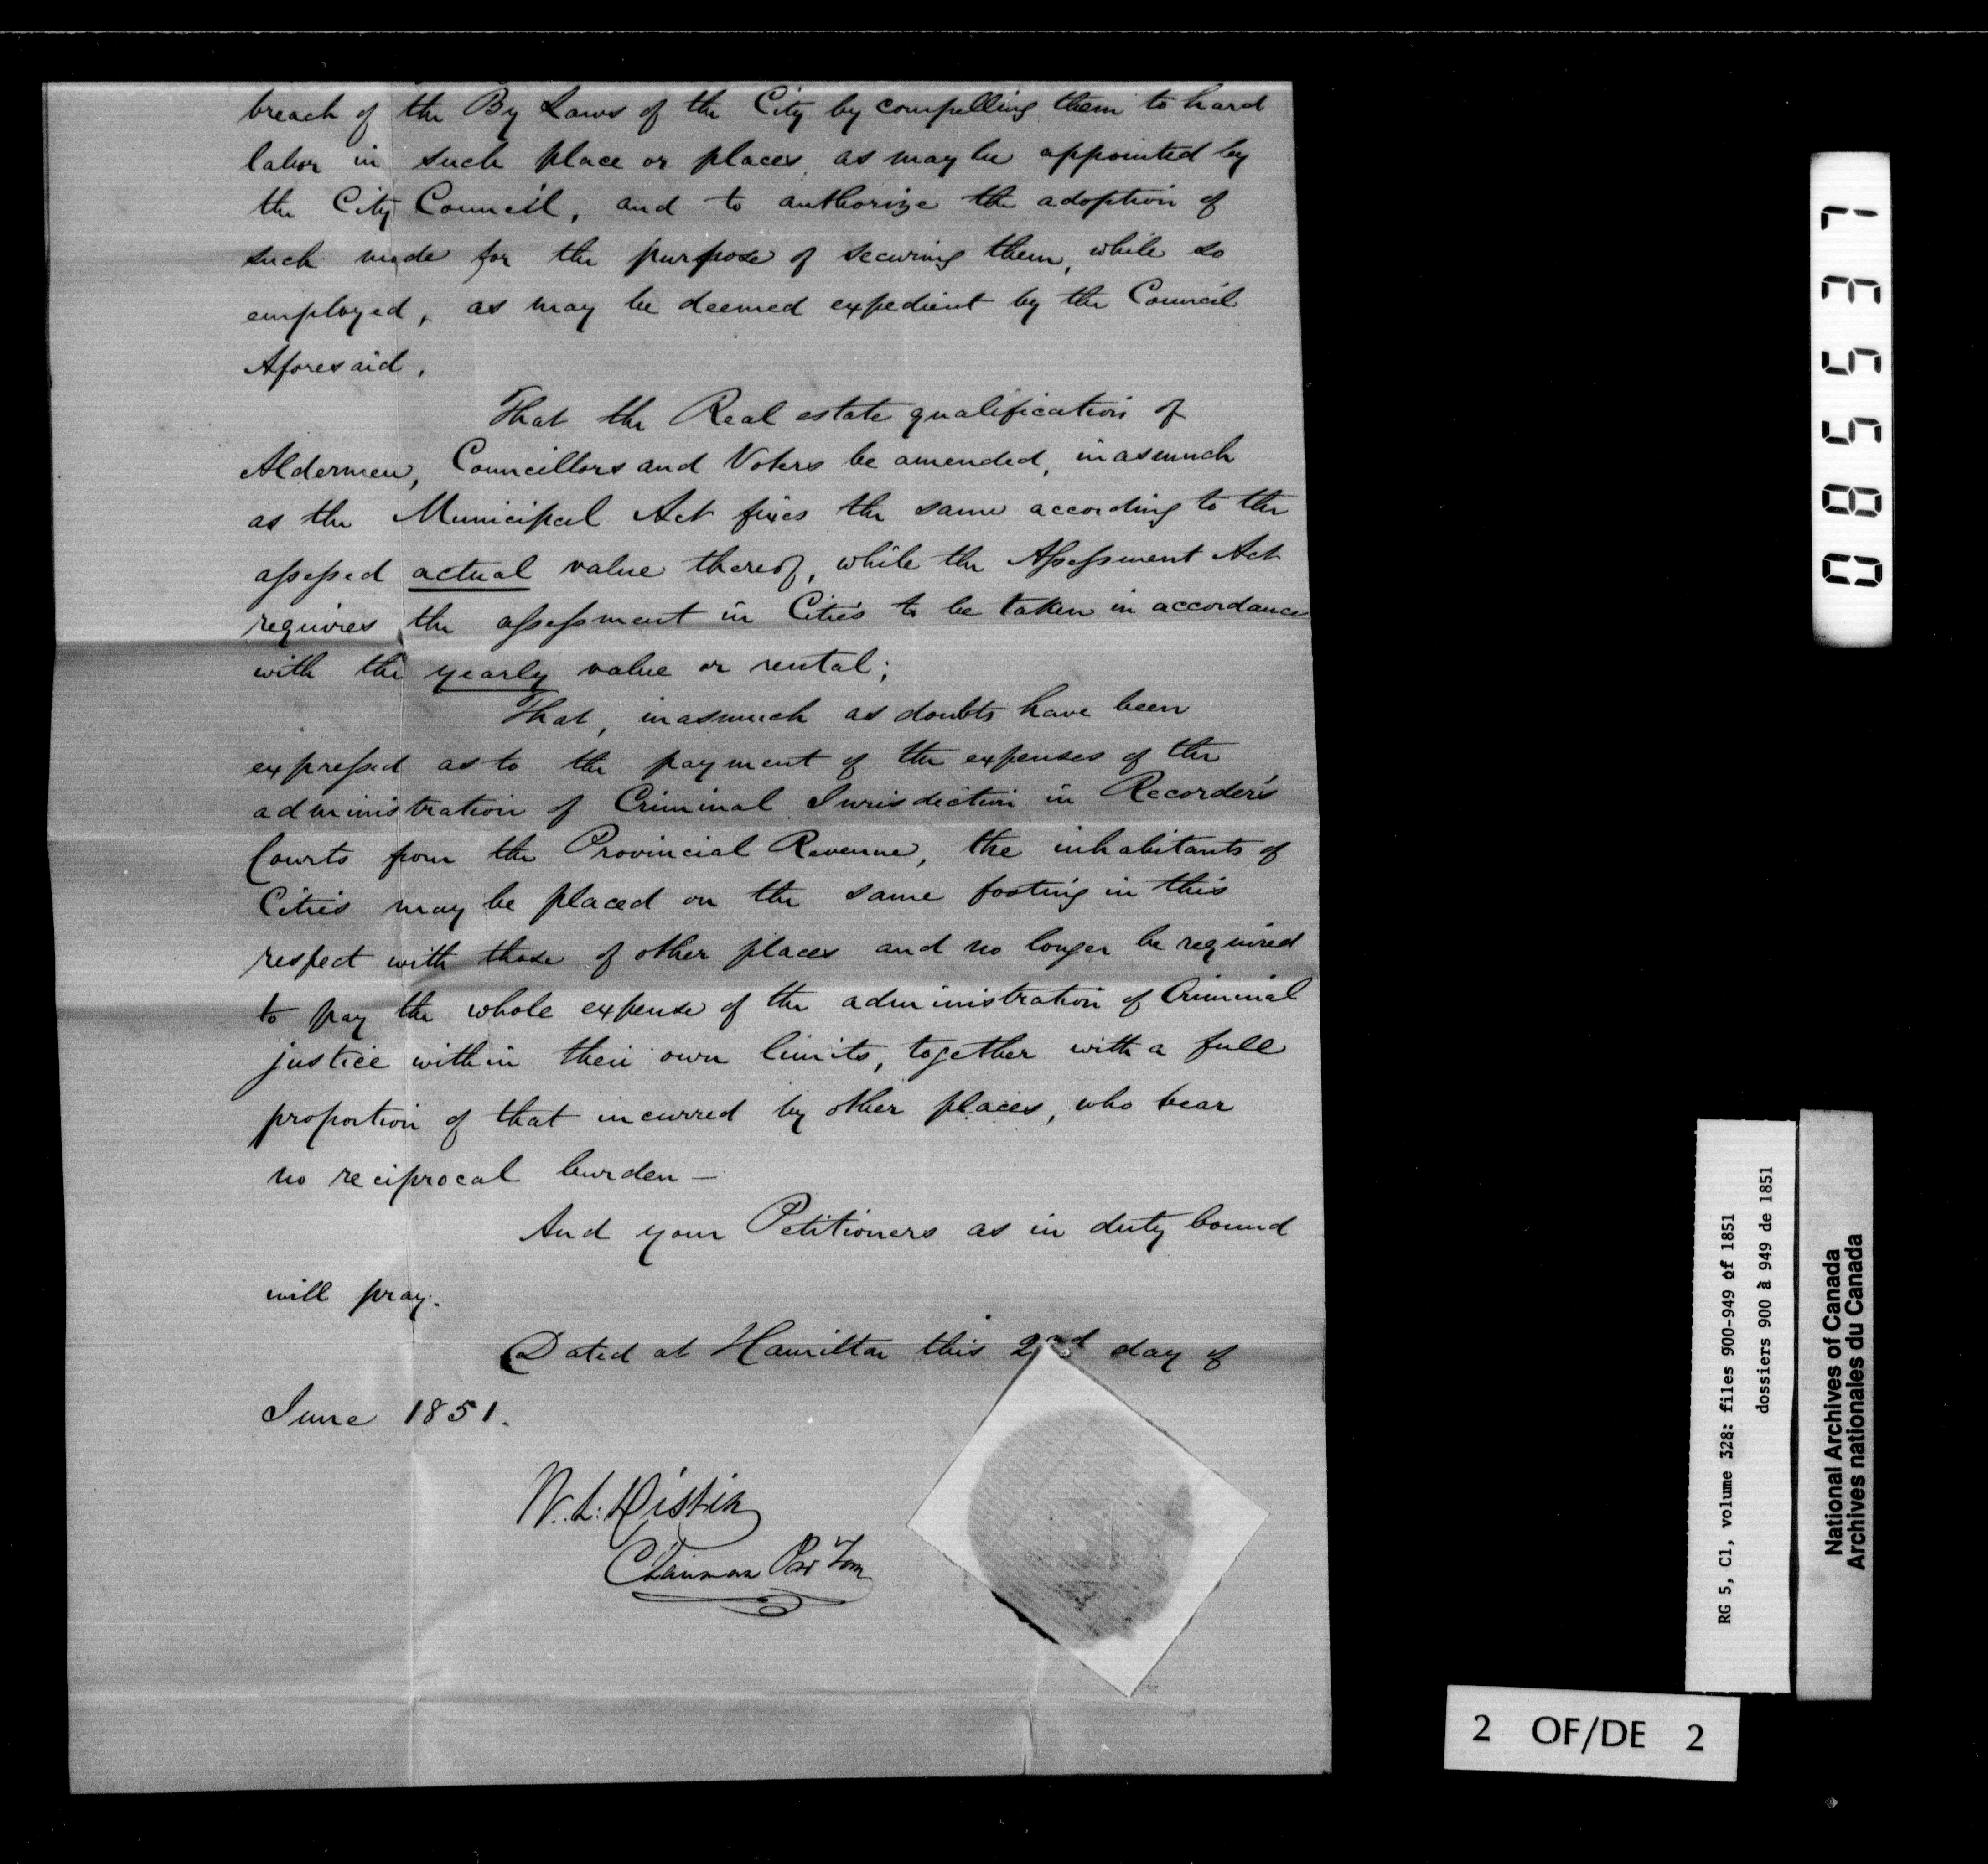 breach of the By Laws of the City by compelling them to hard
labor in such place or places, as may be appointed by
the City Council, and to authorize the adoption of
such mode for the purpose of securing them, while so
employed, as may be deemed expedient by the Council
Aforesaid,
That the Real estate qualification of
Aldermen, Councillors and Voters be amended, inasmuch
as the Municipal Act fixes the same according to the
assessed actual value thereof, while the Assessment Act
requires the assessment in Cities to be taken in accordance
with the yearly value or rental;
That, inasmuch as doubts have been
expressed as to the payment of the expenses of the
administration of Criminal Jurisdiction in Recorder's
Courts from the Provincial Revenue, the inhabitants of
Cities may be placed on the same footing in this
respect with those of other places and no longer be required
to pay the whole expense of the administration of Criminal
justice within their own limits, together with a full
proportion of that incurred by other places, who bear
no reciprocal burden —
And your Petitioners as in duty bound
will pray.
Dated at Hamilton this 2nd day of
June 1851.
W. L. Distin
Chairman Pro Tem
085537
RG 5, C1, volume 328: files 900-949 of 1851
dossiers 900 à 949 de 1851
National Archives of Canada
Archives nationales du Canada
2 OF/DE 2